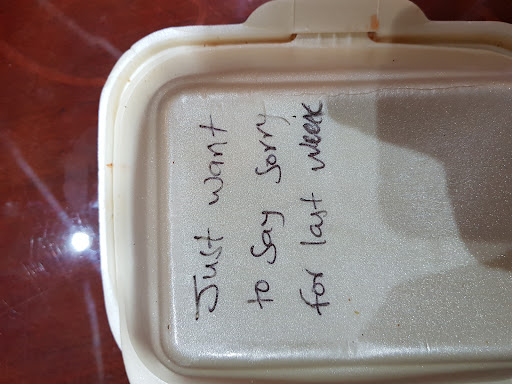 Just want
to say sorry
for last week